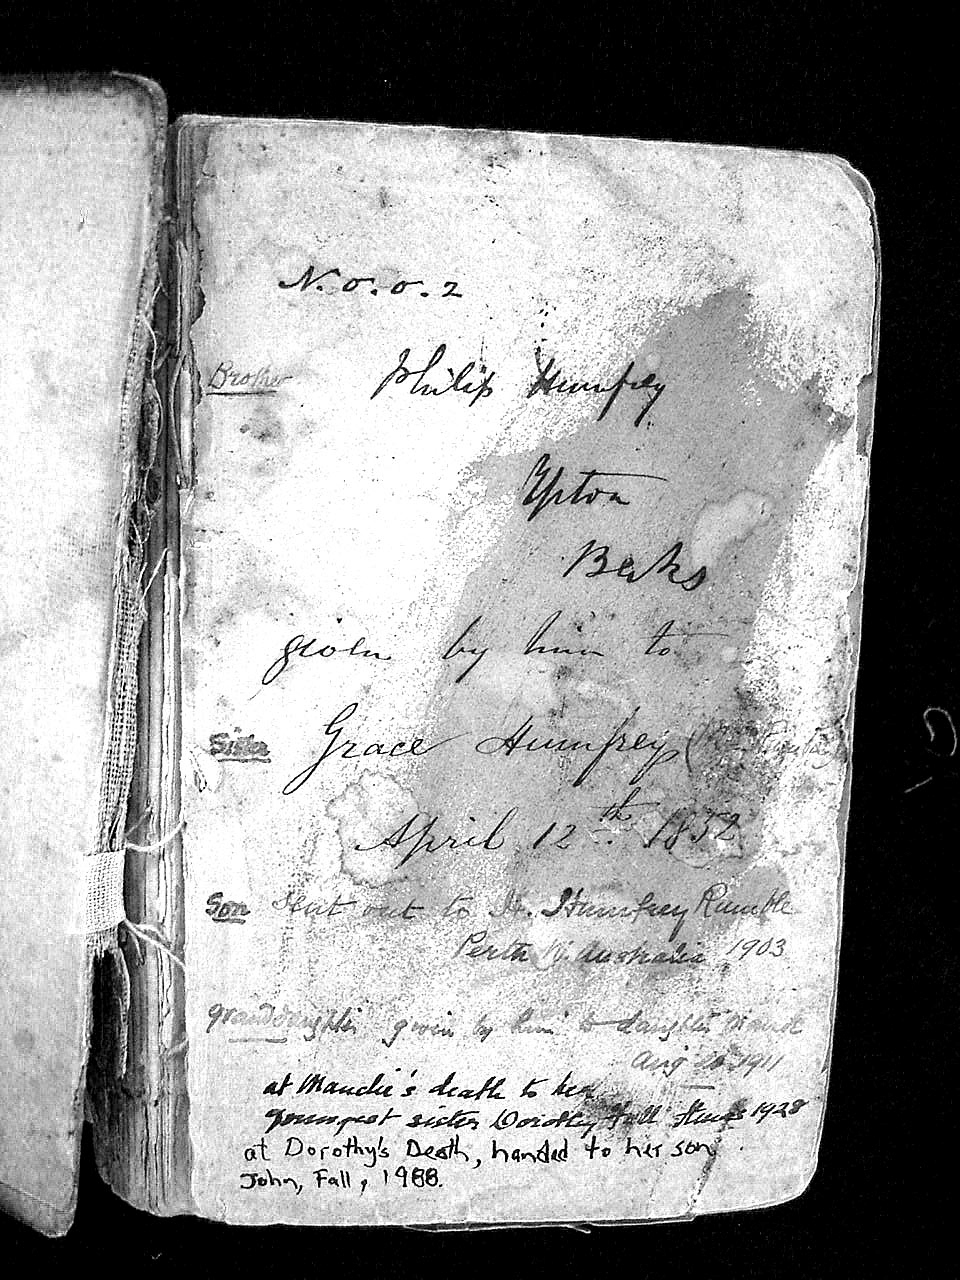 N.o.o.2
Brother Philip Humfrey
Upton
Berks
given by him to
Sister Grace Humfrey
April 12th. 1852
Son Sent out to H. Humfrey Rumble
Perth W. Australia 1903
granddaughter given by him to daughter Maude
Aug 1911
at Maudie's death to her
youngest sister Dorothy 1928
at Dorothy's Death, handed to her son
John, Fall, 1988.